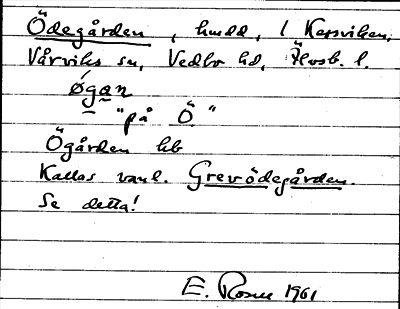 Ödegården, hmdd, i Kersviken,
Vårviks sn, Vedbo hd, Älvsb. l.
øgan
"på Ö"
Ögården hb
Kallas vanl. Grevödegården.
Se detta!
E. Rosen 1961